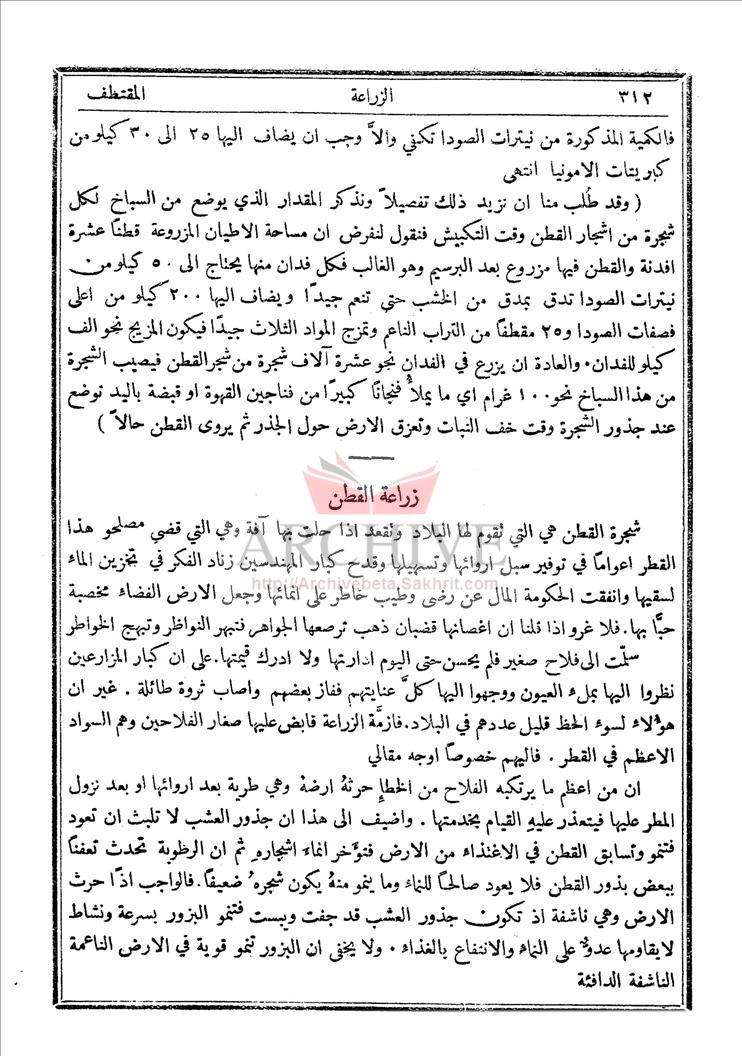 ٣١٢ الزراعة المقتطف
فالكمية المذكورة من نيترات الصودا تكفي والاَّ وجب ان يضاف اليها ٢٥ الى ٣٠ كيلو من
كبريتات الامونيا انتهى
( وقد طُلب منا ان نزيد ذلك تفصيلاً ونذكر المقدار الذي يوضع من السباخ لكل
شجرة من اشجار القطن وقت التكبيش فنقول لنفرض ان مساحة الاطيان المزروعة قطنًا عشرة
افدنة والقطن فيها مزروع بعد البرسيم وهو الغالب فكل فدان منها يحتاج الى ٥٠ كيلو من
نيترات الصودا تدق بمدق من الخشب حتى تنعم جيدًا ويضاف اليها ٢٠٠ كيلو من اعلى
فصفات الصودا و٢٥ مقطفًا من التراب الناعم وتمزج المواد الثلاث جيدًا فيكون المزيج نحو الف
كيلو للفدان. والعادة ان يزرع في الفدان نحو عشرة آلاف شجرة من شجر القطن فيصيب الشجرة
من هذا السباخ نحو ١٠٠ غرام اي ما يملأُ فنجانًا كبيرًا من فناجين القهوة او قبضة باليد توضع
عند جذور الشجرة وقت خف النبات وتعزق الارض حول الجذر ثم يروى القطن حالاً )
زراعة القطن
شجرة القطن هي التي تقوم لها البلاد وتقعد اذا حلت بها آفة وهي التي قضى مصلحو هذا
القطر اعوامًا في توفير سبل اروائها وتسهيلها وقدح كبار المهندسين زناد الفكر في تخزين الماء
لسقيها وانفقت الحكومة المال عن رضى وطيب خاطر على انمائها وجعل الارض الفضاء مخصبة
حبًّا بها. فلا غرو اذا قلنا ان اغصانها قضبان ذهب ترصعها الجواهر فتبهر النواظر وتبهج الخواطر
سلّمت الى فلاح صغير فلم يحسن حتى اليوم ادارتها ولا ادرك قيمتها. على ان كبار المزارعين
نظروا اليها بملء العيون ووجهوا اليها كلَّ عنايتهم ففاز بعضهم واصاب ثروة طائلة . غير ان
هؤلاء لسوء الحظ قليل عددهم في البلاد. فازمَّة الزراعة قابض عليها صغار الفلاحين وهم السواد
الاعظم في القطر . فاليهم خصوصًا اوجه مقالي
ان من اعظم ما يرتكبه الفلاح من الخطإِ حرثهُ ارضهُ وهي طرية بعد اروائها او بعد نزول
المطر عليها فيتعذر عليهِ القيام بخدمتها . واضيف الى هذا ان جذور العشب لا تلبث ان تعود
فتنمو وتسابق القطن في الاغتذاء من الارض فتؤخر انماء اشجارهِ ثم ان الرطوبة تحدث تعفنًا
ببعض بذور القطن فلا يعود صالحًا للنماء وما ينمو منهُ يكون شجرهُ ضعيفًا. فالواجب اذًا حرث
الارض وهي ناشفة اذ تكون جذور العشب قد جفت ويبست فتنمو البزور بسرعة ونشاط
لا يقاومها عدوٌّ على النماء والانتفاع بالغذاء . ولا يخفى ان البزور تنمو قوية في الارض الناعمة
الناشفة الدافئة
ARCHIVE
http://Archivebeta.Sakhrit.com